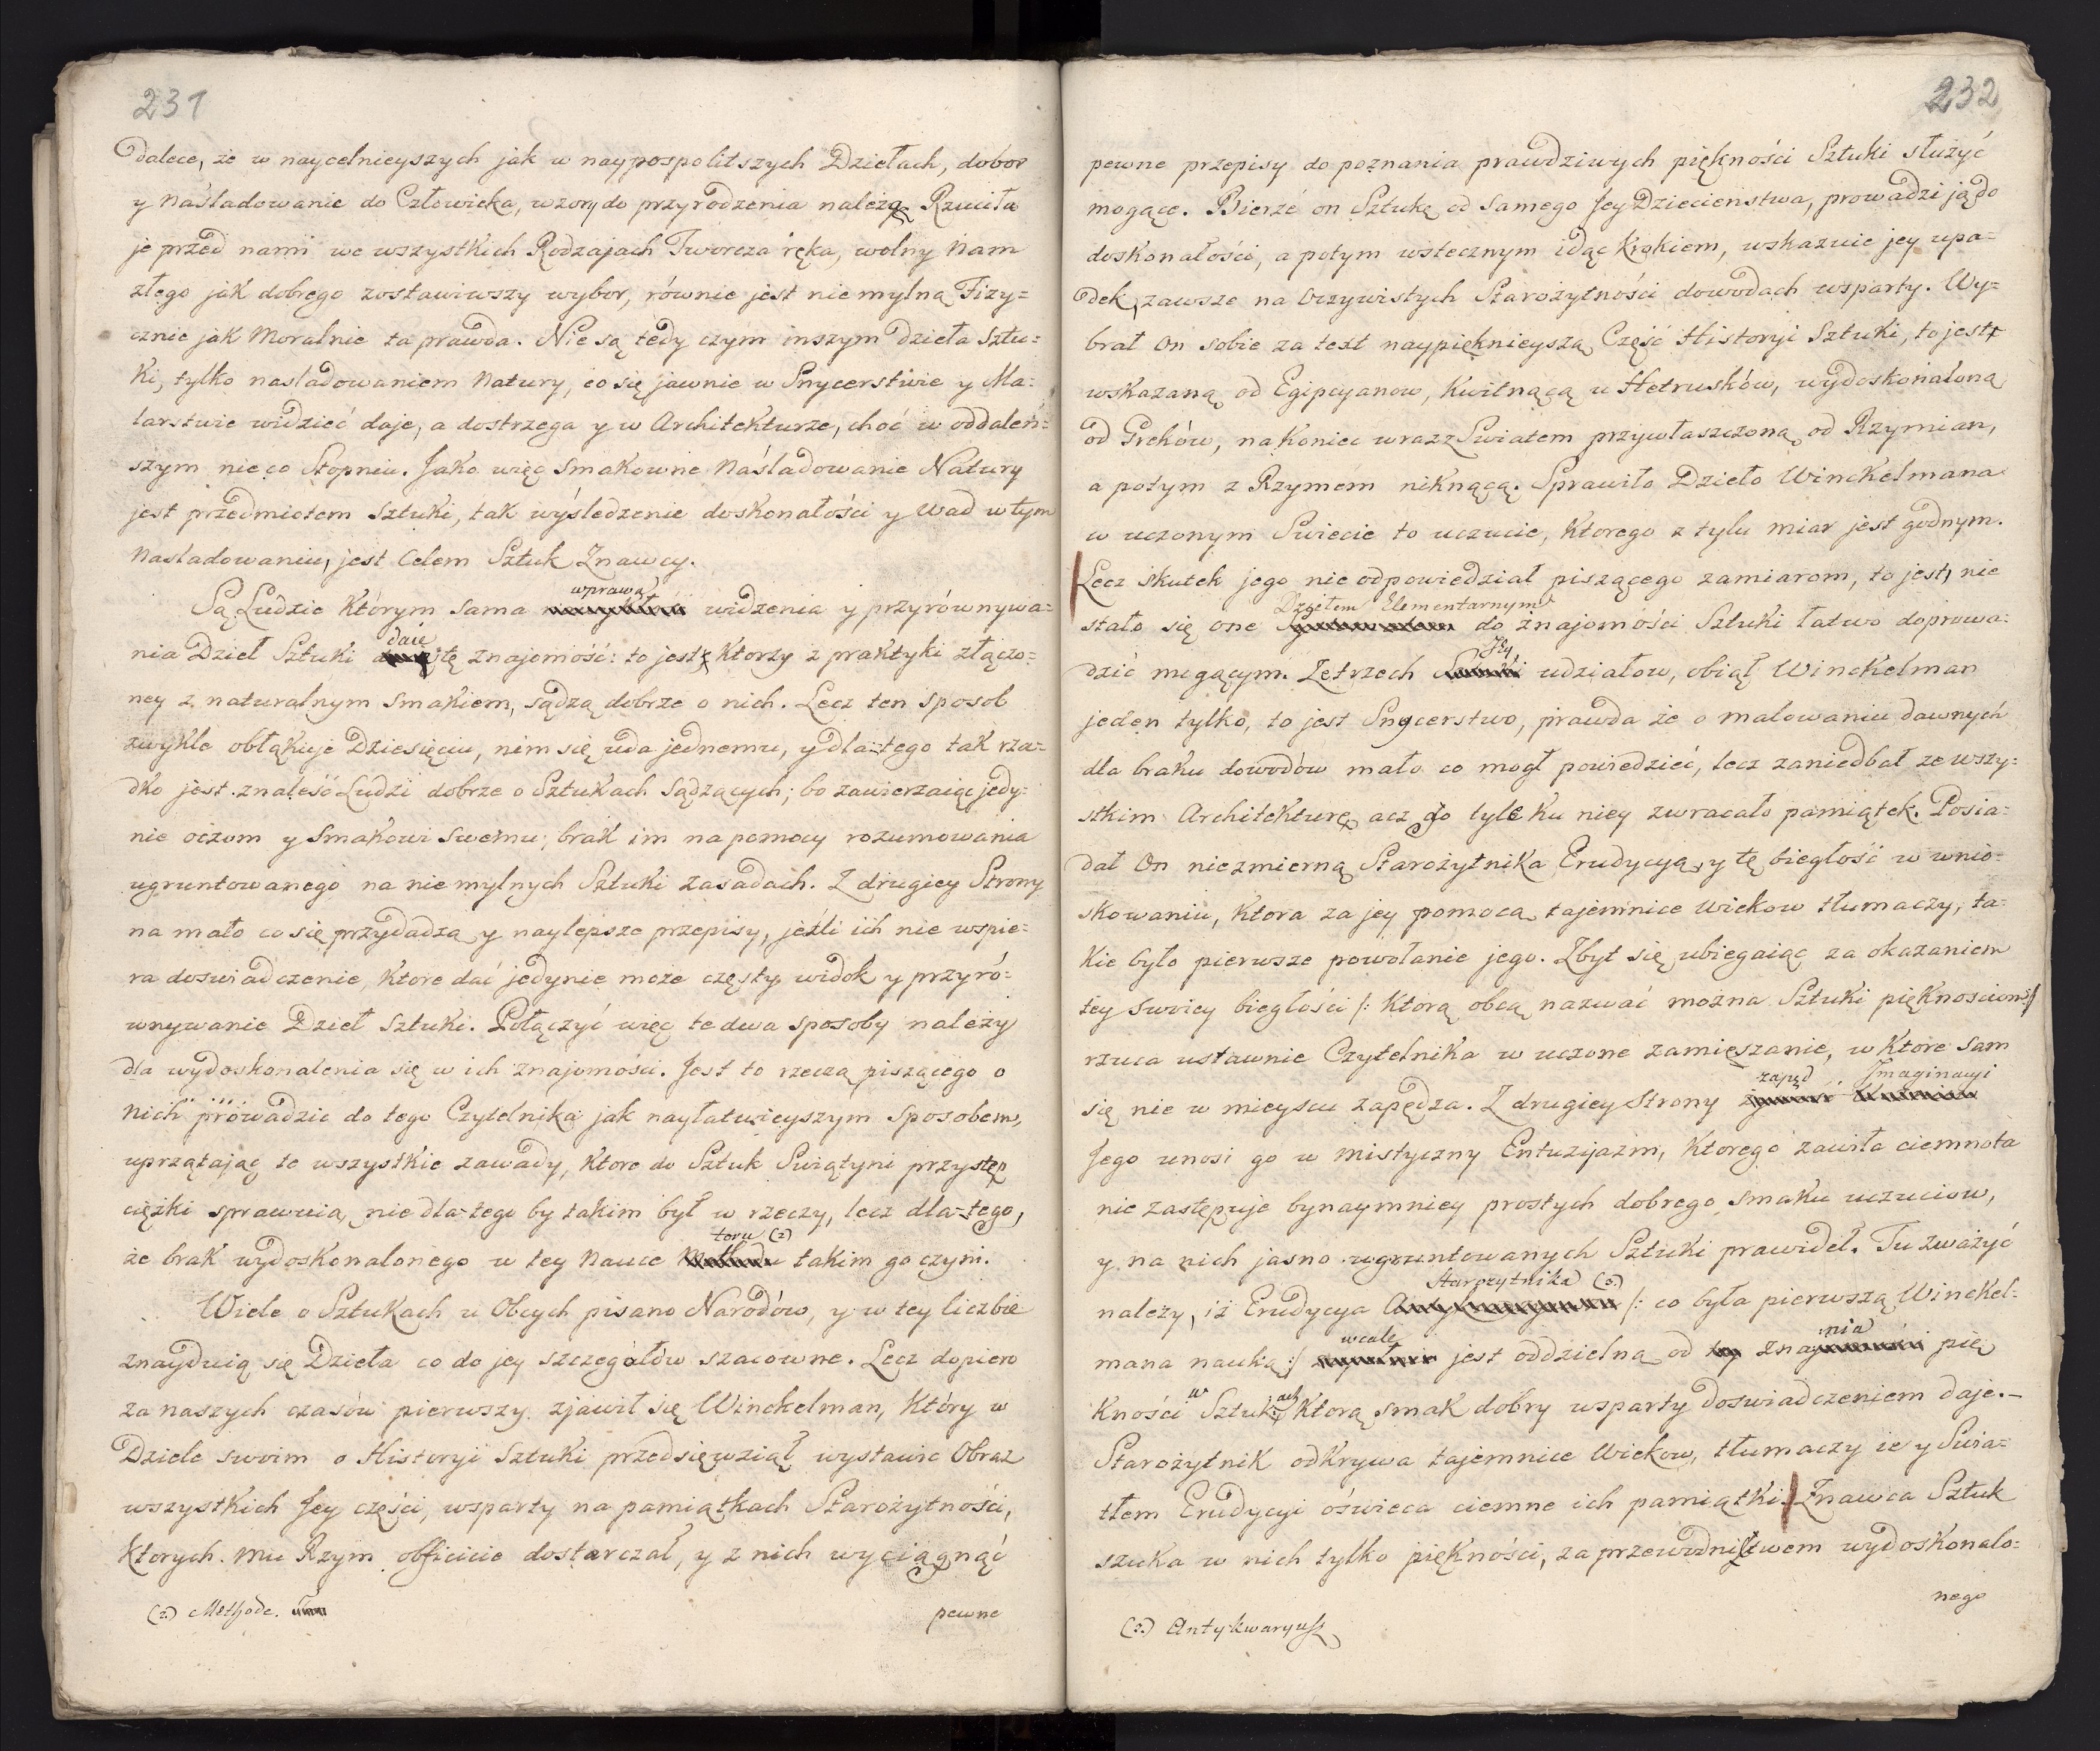 231
dalece, że w naycelnieyszych jak w naypospolitszych Dziełach, dobor
y naśladowanie do Człowieka, wzory do przyrodzenia należą. Rzuciła
je przed nami we wszystkich Rodzajach Tworcza ręka, wolny nam
złego jak dobrego zostawiwszy wybor, równie jest niemylną Fizy=
cznie jak Moralnie ta prawda. Nie są tedy czym inszym dzieła Sztu=
ki, tylko nasladowaniem Natury, co się jawnie w Snycerstwie y Ma=
larstwie widzieć daje, a dostrzega y w Architekturze, choć w oddaleń=
szym nieco Stopniu. Jako więc smakowne Naśladowanie Natury
jest przedmiotem Sztuki, tak wyśledzenie doskonałości y Wad w tym
Nasladowaniu, jest Celem Sztuk Znawcy.
wprawa
Są Ludzie Którym sama widzenia y przyrównywa=
daie
nia Dzieł Sztuki tę znajomość: to jest Ktorzy z praktyki złączo=
ney z naturalnym smakiem, sądzą dobrze o nich. Lecz ten sposob
zwykle obłąkuje Dziesięciu, nim się uda jednemu, y dla=tego tak rza=
dko jest znaleść Ludzi dobrze o Sztukach Sądzących; bo zawierzaiąc jedy=
nie oczom y Smakowi Swemu, brak im na pomocy rozumowania
ugruntowanego na niemylnych Sztuki zasadach. Z drugiey Strony
na mało co się przydadzą y naylepsze przepisy, jeźli ich nie wspie=
ra doswiadczenie, Ktore dać jedynie może częsty widok y przyró=
wnywanie Dzieł Sztuki. Połączyć więc te dwa sposoby należy
dla wydoskonalenia się w ich znajomości. Jest to rzeczą piszącego o
nich prowadzić do tego Czytelnika jak nayłatwieyszym Sposobem,
uprzątając te wszystkie zawady, Ktore do Sztuk Swiątyni przystęp
ciężki sprawuią, nie dla=tego by takim był w rzeczy, lecz dla=tego,
toru (2)
że brak wydoskonalonego w tey Nauce takim go czyni.
Wiele o Sztukach u Obcych pisano Narodów, y w tey liczbie
znayduią się Dzieła co do jey szczegółów szacowne. Lecz dopiero
za naszych czasów pierwszy zjawił się Winckelman, Który w
Dziele swoim o Historyi Sztuki przedsięwziął wystawić Obraz
wszystkich Jey części, wsparty na pamiątkach Starożytności,
Ktorych mu Rzym obficie dostarczał, y z nich wyciągnąć
(2.) Methode.
pewne
232
pewne przepisy do poznania prawdziwych piękności Sztuki służyć
mogące. Bierze on Sztukę od samego Jey Dziecieństwa, prowadzi ją do
doskonałości, a potym wstecznym idąc Krokiem, wskazuie jey upa=
dek, zawsze na Oczywistych Starożytności dowodach wsparty. Wy=
brał On sobie za text naypięknieyszą Część Historyi Sztuki, to jest
wskazaną od Egipcyanow, Kwitnącą u Hetrusków, wydoskonaloną
od Greków, nakoniec wraz z Swiatem przywłaszczoną od Rzymian,
a potym z Rzymem niknącą. Sprawiło Dzieło Winckelmana
w uczonym Swiecie to uczucie, Ktorego z tylu miar jest godnym.
Lecz skutek jego nie odpowiedział piszącego zamiarom, to jest, nie
Dziełem Elementarnym
stało się one do znajomości Sztuki łatwo doprowa=
Jey
dzić mogącym. Ze trzech udziałow, obiął Winckelman
jeden tylko, to jest Snycerstwo, prawda że o malowaniu dawnych
dla braku dowodów mało co mogł powiedzieć, lecz zaniedbał ze wszy=
stkim Architekturę, acz go tyle ku niey zwracało pamiątek. Posia=
dał On niezmierną Starożytnika Erudycyą, y tę biegłość w wnio=
skowaniu, Ktora za jey pomocą tajemnice Wiekow tłumaczy, ta=
Kie było pierwsze powołanie jego. Zbyt się ubiegaiąc za okazaniem
tey swoiey biegłości /: Ktorą obcą nazwać można Sztuki pięknosciom :/
rzuca ustawnie Czytelnika w uczone zamięszanie, w Ktore sam
zapęd Imaginacyi
się nie w mieyscu zapędza. Z drugiey Strony
Jego unosi go w mistyczny Entuzijazm, Ktorego zawiła ciemnota
nie zastępuje bynaymniey prostych dobrego smaku uczuciow,
y na nich jasno ugruntowanych Sztuki prawideł. Tu zważyć
Starożytnika (2.)
należy, iż Erudycya /: co była pierwszą Winckel=
wcale nia
mana nauką :/ jest oddzielną od zna pię
w ach
Kności Sztuk Ktorą smak dobry wsparty doswiadczeniem daje.—
Starożytnik odkrywa tajemnice Wiekow, tłumaczy ie y Swia=
tłem Erudycyi oświeca ciemne ich pamiątki. Znawca Sztuk
szuka w nich tylko piękności, za przewodnictwem wydoskonalo=
nego
(2.) Antykwaryusz